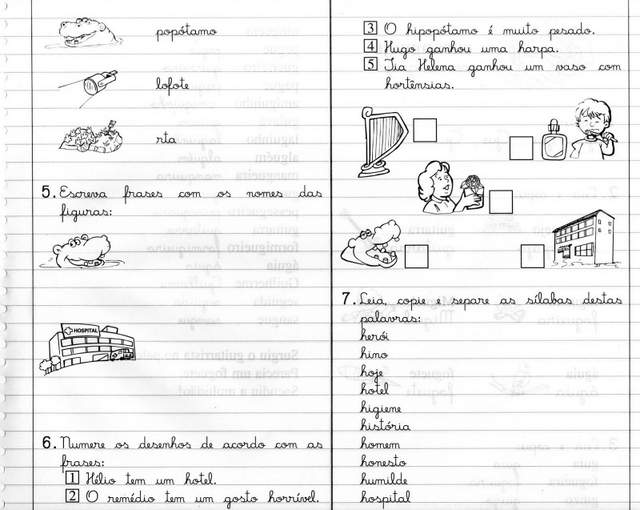 popótamo
lofote
rta
5. Escreva frases com os nomes das
figuras:
HOSPITAL
6. Numere os desenhos de acordo com as
frases:
1 Hélio tem um hotel.
2 O remédio tem um gosto horrível.
3 O hipopótamo é muito pesado.
4 Hugo ganhou uma harpa.
5 Tia Helena ganhou um vaso com
hortênsias.
7. Leia, copie e separe as sílabas destas
palavras:
herói
hino
hoje
hotel
higiene
história
homem
honesto
humilde
hospital